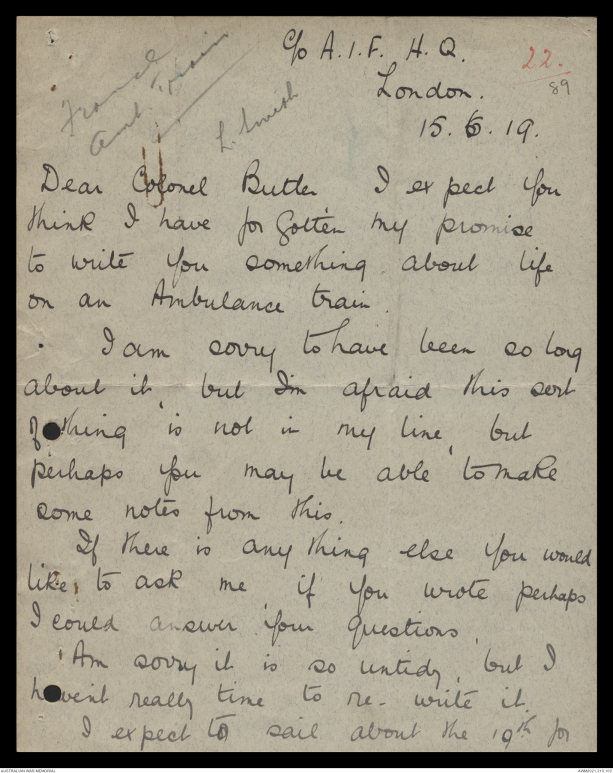 c/o A.I.F. H.Q.
22.
89
London.
France
Amb. Train
15. 5. 19.
Dear Colonel Butler I expect you
think I have forgotten my promise
to write you something about life
on an Ambulance train.
I am sorry to have been so long
about it, but I'm afraid this sort
of thing is not in my line, but
perhaps you may be able to make
some notes from this.
If there is any thing else you would
like to ask me if you wrote perhaps
I could answer your questions.
Am sorry it is so untidy, but I
haven't really time to re-write it.
I expect to sail about the 19th for
AUSTRALIAN WAR MEMORIAL